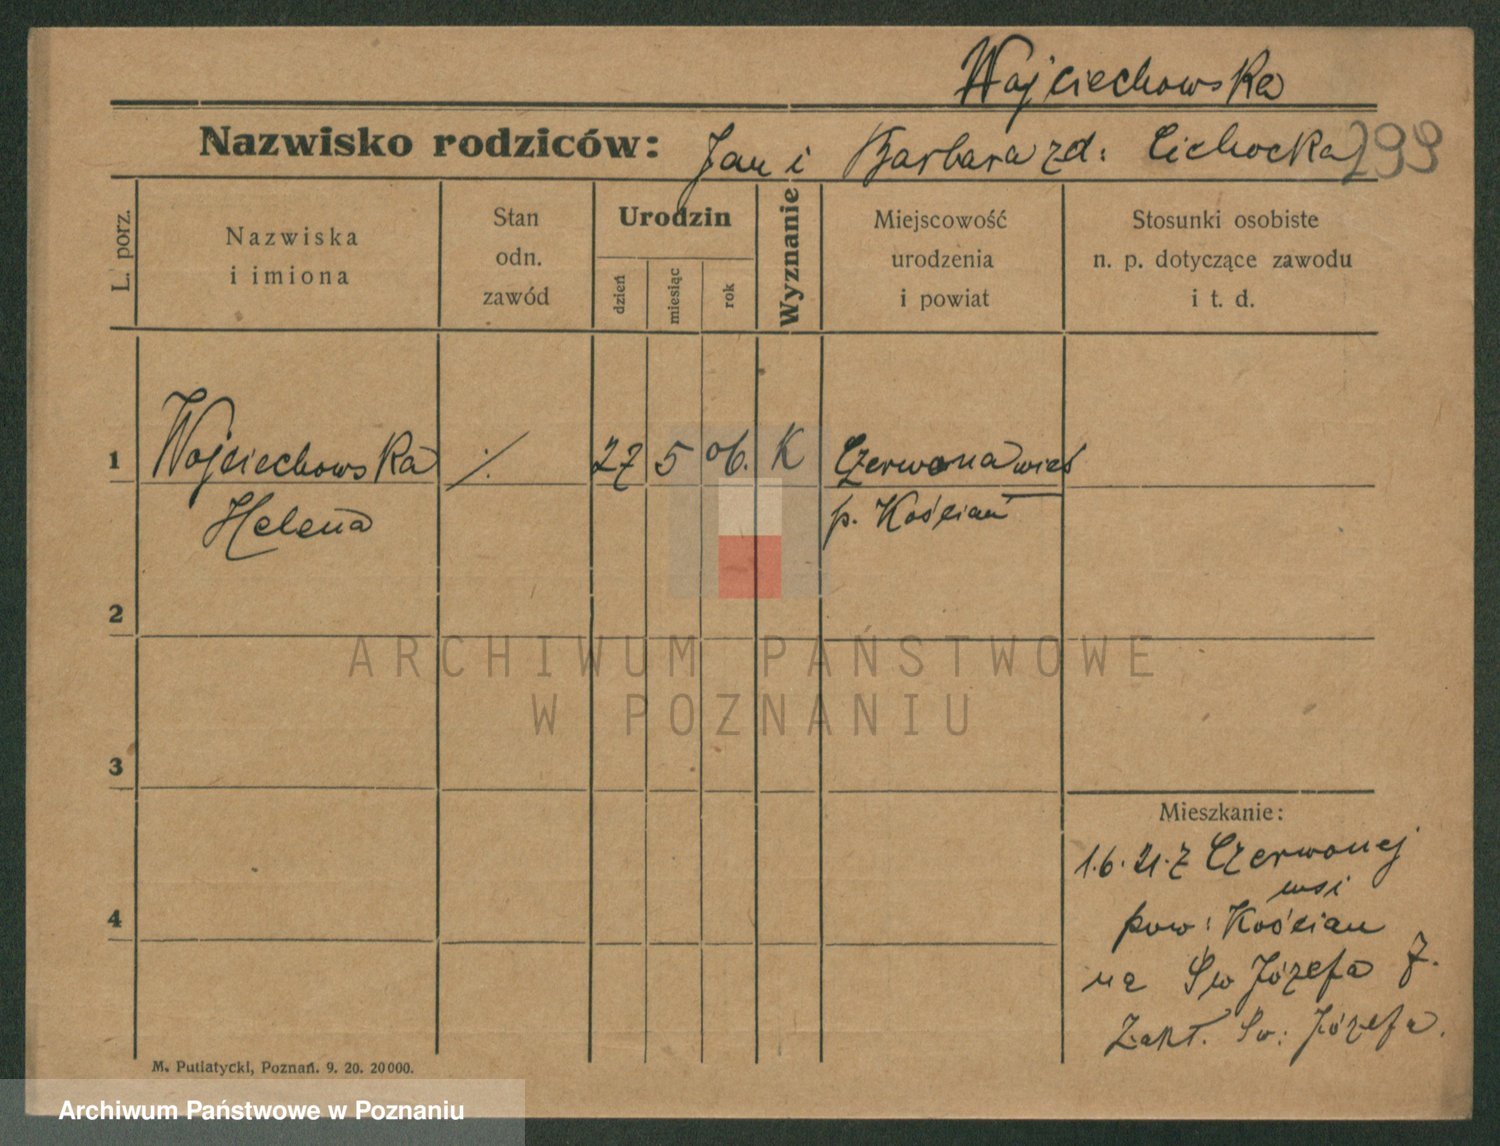 Wojciechowska
Nazwisko rodziców: Jan i Barbara zd: Cichocka 299
L. porz.
Nazwiska
i imiona
Stan
odn.
zawód
Urodzin
dzień
miesiąc
rok
Wyznanie
Miejscowość
urodzenia
i powiat
Stosunki osobiste
n. p. dotyczące zawodu
i t. d.
1 Wojciechowska ·/. 27 5 06. K Czerwona wieś
Helena p. Kościan
2
ARCHIWUM PAŃSTWOWE
W POZNANIU
3
Mieszkanie:
1.6.21. z Czerwonej
wsi
4
pow: Kościan
na Św Józefa 7.
Zakł. Św: Józefa.
M. Putiatycki, Poznań. 9. 20. 20000.
Archiwum Państwowe w Poznaniu